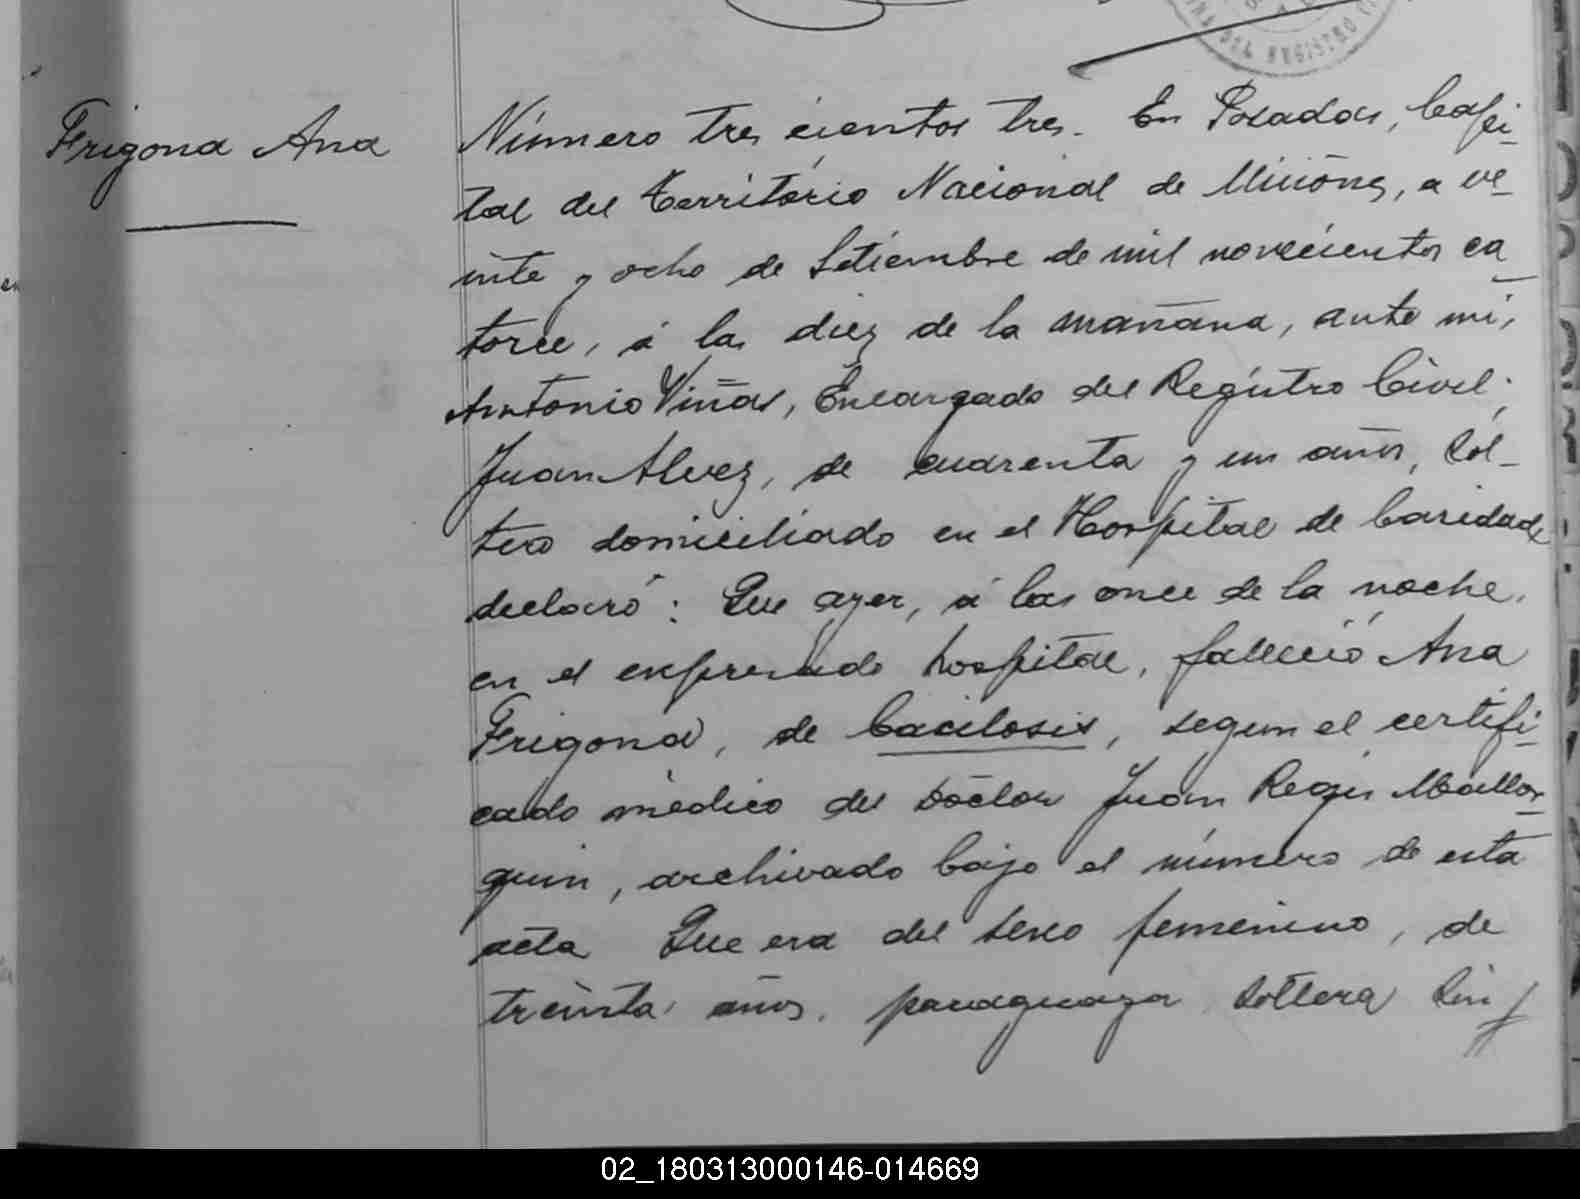 Frigona Ana
Número tres cientos tres. En Posadas, Capi-
tal del Territorio Nacional de Misiones, a ve-
inte y ocho de Setiembre de mil novecientos ca
torce, á las diez de la mañana, ante mi,
Antonio Viñas, Encargado del Registro Civil;
Juan Alvez, de cuarenta y un años, sol-
tero domiciliado en el Hospital de Caridad
declaró: Que ayer, á las once de la noche,
en el expresado hospital, falleció Ana
Frigona, de bacilosis, segun el certifi-
cado médico del Doctor Juan Regis Mallor-
quin, archivado bajo el número de esta
acta Que era del sexo femenino, de
treinta años, paraguaya soltera sin
02_180313000146-014669